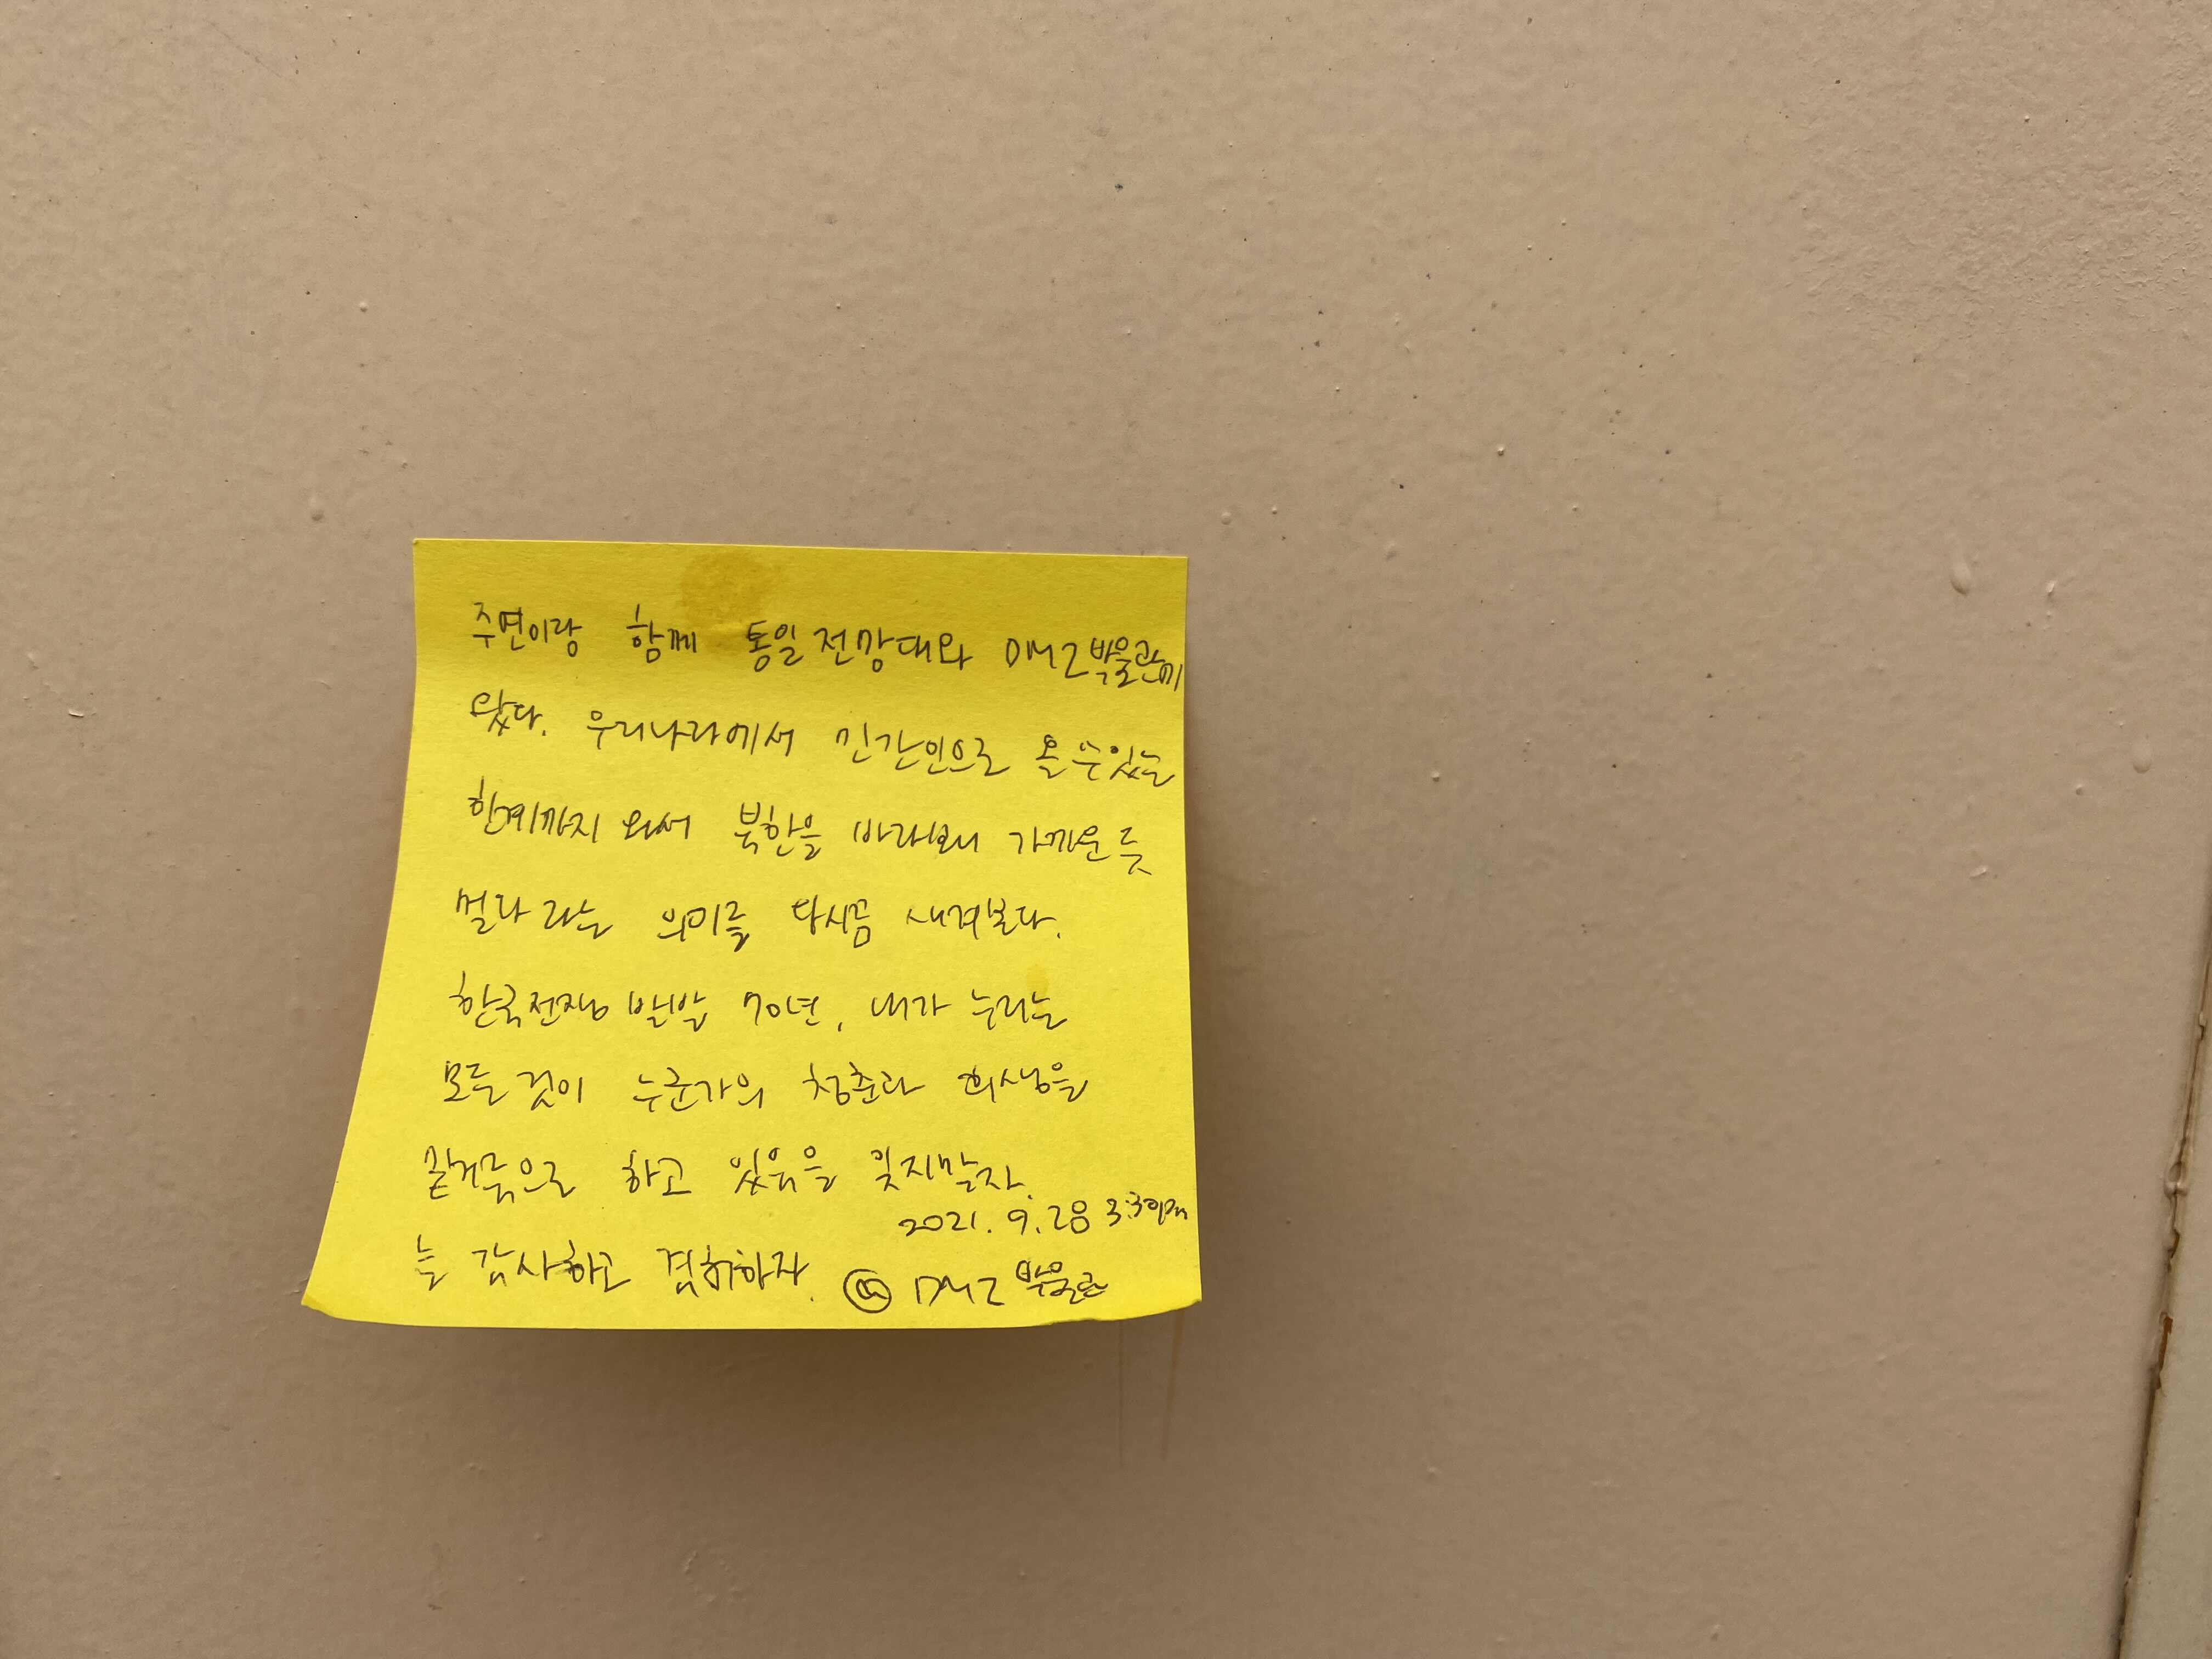 주연이랑 함께 통일전망대와 DMZ박물관에
왔다. 우리나라에서 민간인으로 올 수 있는
한계까지 와서 북한을 바라보니 가까운 듯
멀다 라는 의미를 다시금 새겨본다.
한국전쟁 발발 70년, 내가 누리는
모든 것이 누군가의 청춘과 희생을
밑거름으로 하고 있음을 잊지말자.
2021. 9. 28 3:30pm
늘 감사하고 겸허하자. @ DMZ 박물관